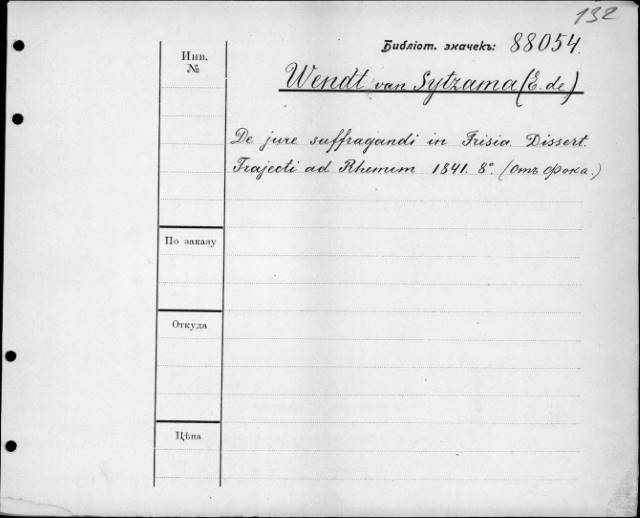 132
Библіот. значекъ: 88054.
Инв.
№
Wendt van Sytzama (E. de)
De jure suffragandi in Frisia. Dissert.
Trajecti ad Rhenum 1841. 8°. (отъ Фока.)
По заказу
Откуда
Цѣна